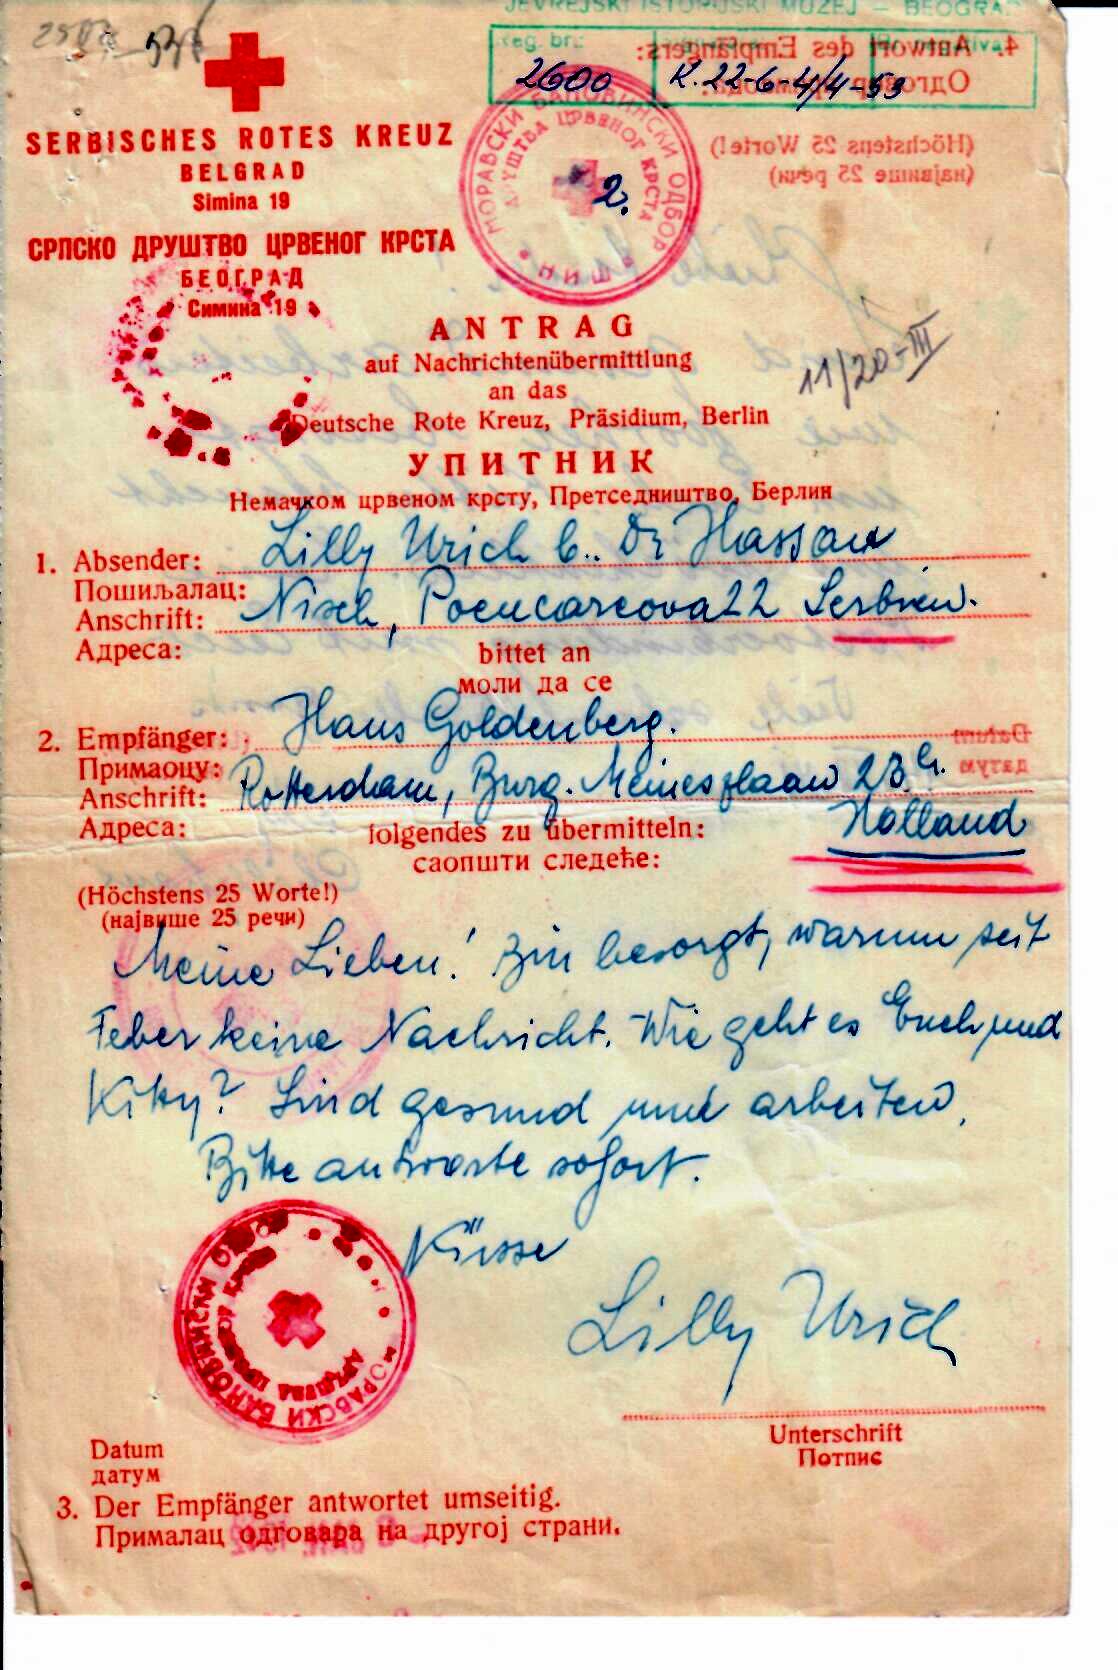 JEVREJSKI ISTORIJSKI MUZEJ — BEOGRAD
Reg. br.:
2600
K. 22-6-4/4-53
4. Antwort des Empfängers:
(Höchstens 25 Worte!)
(највише 25 речи)
SERBISCHES ROTES KREUZ
BELGRAD
Simina 19
СРПСКО ДРУШТВО ЦРВЕНОГ КРСТА
БЕОГРАД
Симина 19
МОРАВСКИ БАНОВИНСКИ ОДБОР
ДРУШТВА ЦРВЕНОГ КРСТА
НИШ
2.
ANTRAG
auf Nachrichtenübermittlung
an das
Deutsche Rote Kreuz, Präsidium, Berlin
11/20-III
УПИТНИК
Немачком црвеном крсту, Претседништво, Берлин
1. Absender: Lilly Urich b. Dr Hassan
Пошиљалац:
Anschrift: Nisch, Poencareova 22 Serbien.
Адреса:
bittet an
моли да се
2. Empfänger: Hans Goldenberg.
Примаоцу:
Anschrift: Rotterdam, Burg. Meinesplaan 23
Адреса:
Holland
folgendes zu übermitteln:
саопшти следеће:
(Höchstens 25 Worte!)
(највише 25 речи)
Meine Lieben! Bin besorgt, warum seit
Feber keine Nachricht. Wie geht es Euch und
Kitty? Sind gesund und arbeiten.
Bitte antworte sofort.
Küsse
Lilly Urich
МОРАВСКИ БАНОВИНСКИ ОДБОР
ДРУШТВА ЦРВЕНОГ КРСТА
Unterschrift
Потпис
Datum
датум
3. Der Empfänger antwortet umseitig.
Прималац одговара на другој страни.